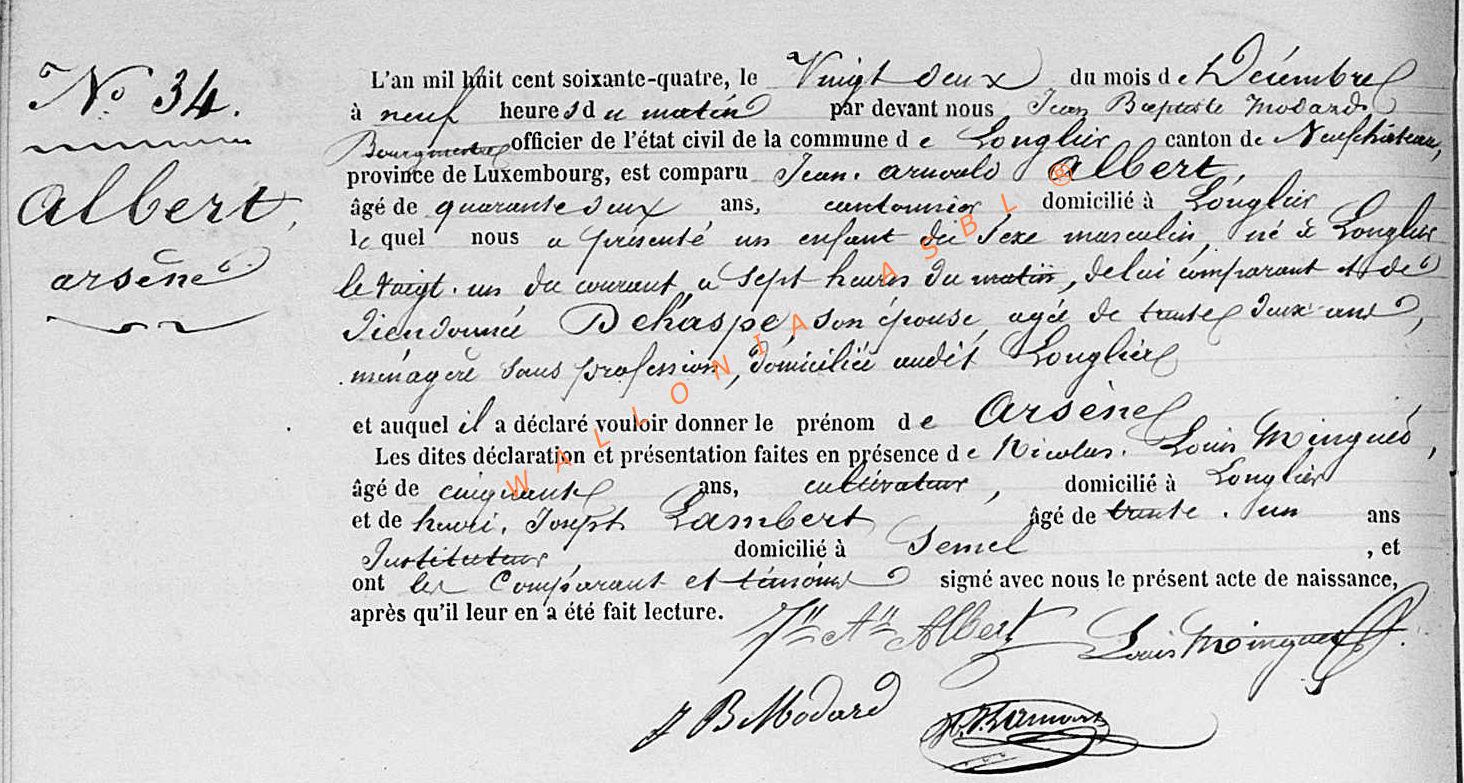 N° 34.
Albert,
arsène
L'an mil huit cent soixante-quatre, le Vingt deux du mois de Décembre
à neuf heures du matin par devant nous Jean Baptiste Modard
Bourgmestre officier de l'état civil de la commune de Longlier canton de Neufchâteau,
province de Luxembourg, est comparu Jean. arnould Albert,
âgé de quarante deux ans, cantonnier domicilié à Longlier
lequel nous a présenté un enfant du sexe masculin, né à Longlier
le vingt. un du courant, à sept heures du matin, de lui comparant et de
Dieudonnée Dehaspe, son épouse, agée de trente deux ans,
ménagère sans profession, domiciliée audit Longlier
et auquel il a déclaré vouloir donner le prénom de Arsène
Les dites déclaration et présentation faites en présence de Nicolas. Louis Mingues,
âgé de cinquante ans, cultivateur, domicilié à Longlier
et de henri. Joseph Lambert âgé de trente. un ans
Instituteur domicilié à Semel, et
ont les Comparant et témoins signé avec nous le présent acte de naissance,
après qu'il leur en a été fait lecture.
Jn Ad Albert Louis Mingues
J B Modard
WALLONIA ASBL @